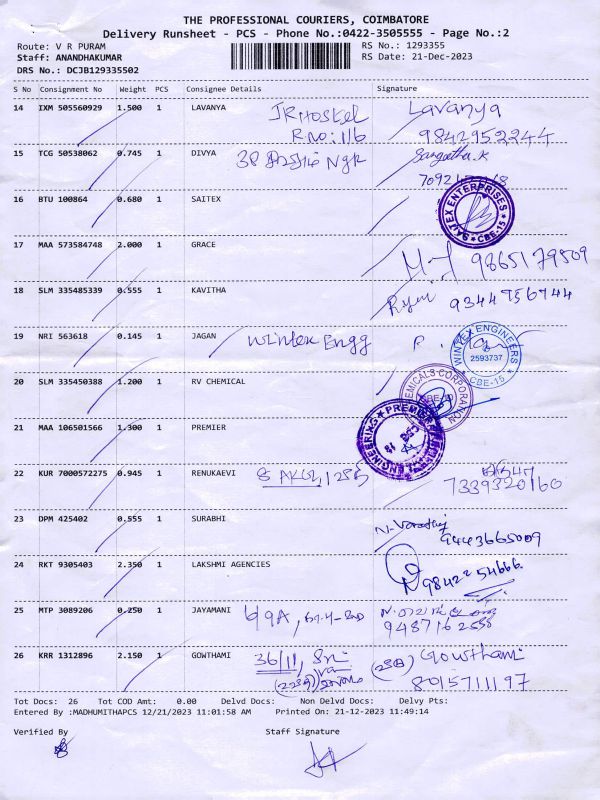 THE PROFESSIONAL COURIERS, COIMBATORE
Delivery Runsheet - PCS - Phone No.:0422-3505555 - Page No.:2
Route: V R PURAM
RS No.: 1293355
Staff: ANANDHAKUMAR
RS Date: 21-Dec-2023
DRS No.: DCJB129335502
S No Consignment No Weight PCS Consignee Details Signature
14 IXM 505560929 1.500 1 LAVANYA JR Hostel Lavanya
R.no: 116 9842952244
15 TCG 50538062 0.745 1 DIVYA 38 NGR Sangeetha.K
16 BTU 100864 0.680 1 SAITEX
SAITEX ENTERPRISES CBE-15
17 MAA 573584748 2.000 1 GRACE
9865179509
18 SLM 335485339 0.555 1 KAVITHA
9344756744
19 NRI 563618 0.145 1 JAGAN Wintex Engg
WINTEX ENGINEERS 2593737 CBE-15
20 SLM 335450388 1.200 1 RV CHEMICAL
CHEMICALS CORPORATION
21 MAA 106501566 1.300 1 PREMIER
PREMIER ENGINEERING
22 KUR 7000572275 0.945 1 RENUKAEVI
7339320160
23 DPM 425402 0.555 1 SURABHI
9443665009
24 RKT 9305403 2.350 1 LAKSHMI AGENCIES
9842254666
25 MTP 3089206 0.250 1 JAYAMANI
26 KRR 1312896 2.150 1 GOWTHAMI 36/11, Sri Gowthami
8015711197
Tot Docs: 26 Tot COD Amt: 0.00 Delvd Docs: Non Delvd Docs: Delvy Pts:
Entered By :MADHUMITHAPCS 12/21/2023 11:01:58 AM Printed On: 21-12-2023 11:49:14
Verified By Staff Signature